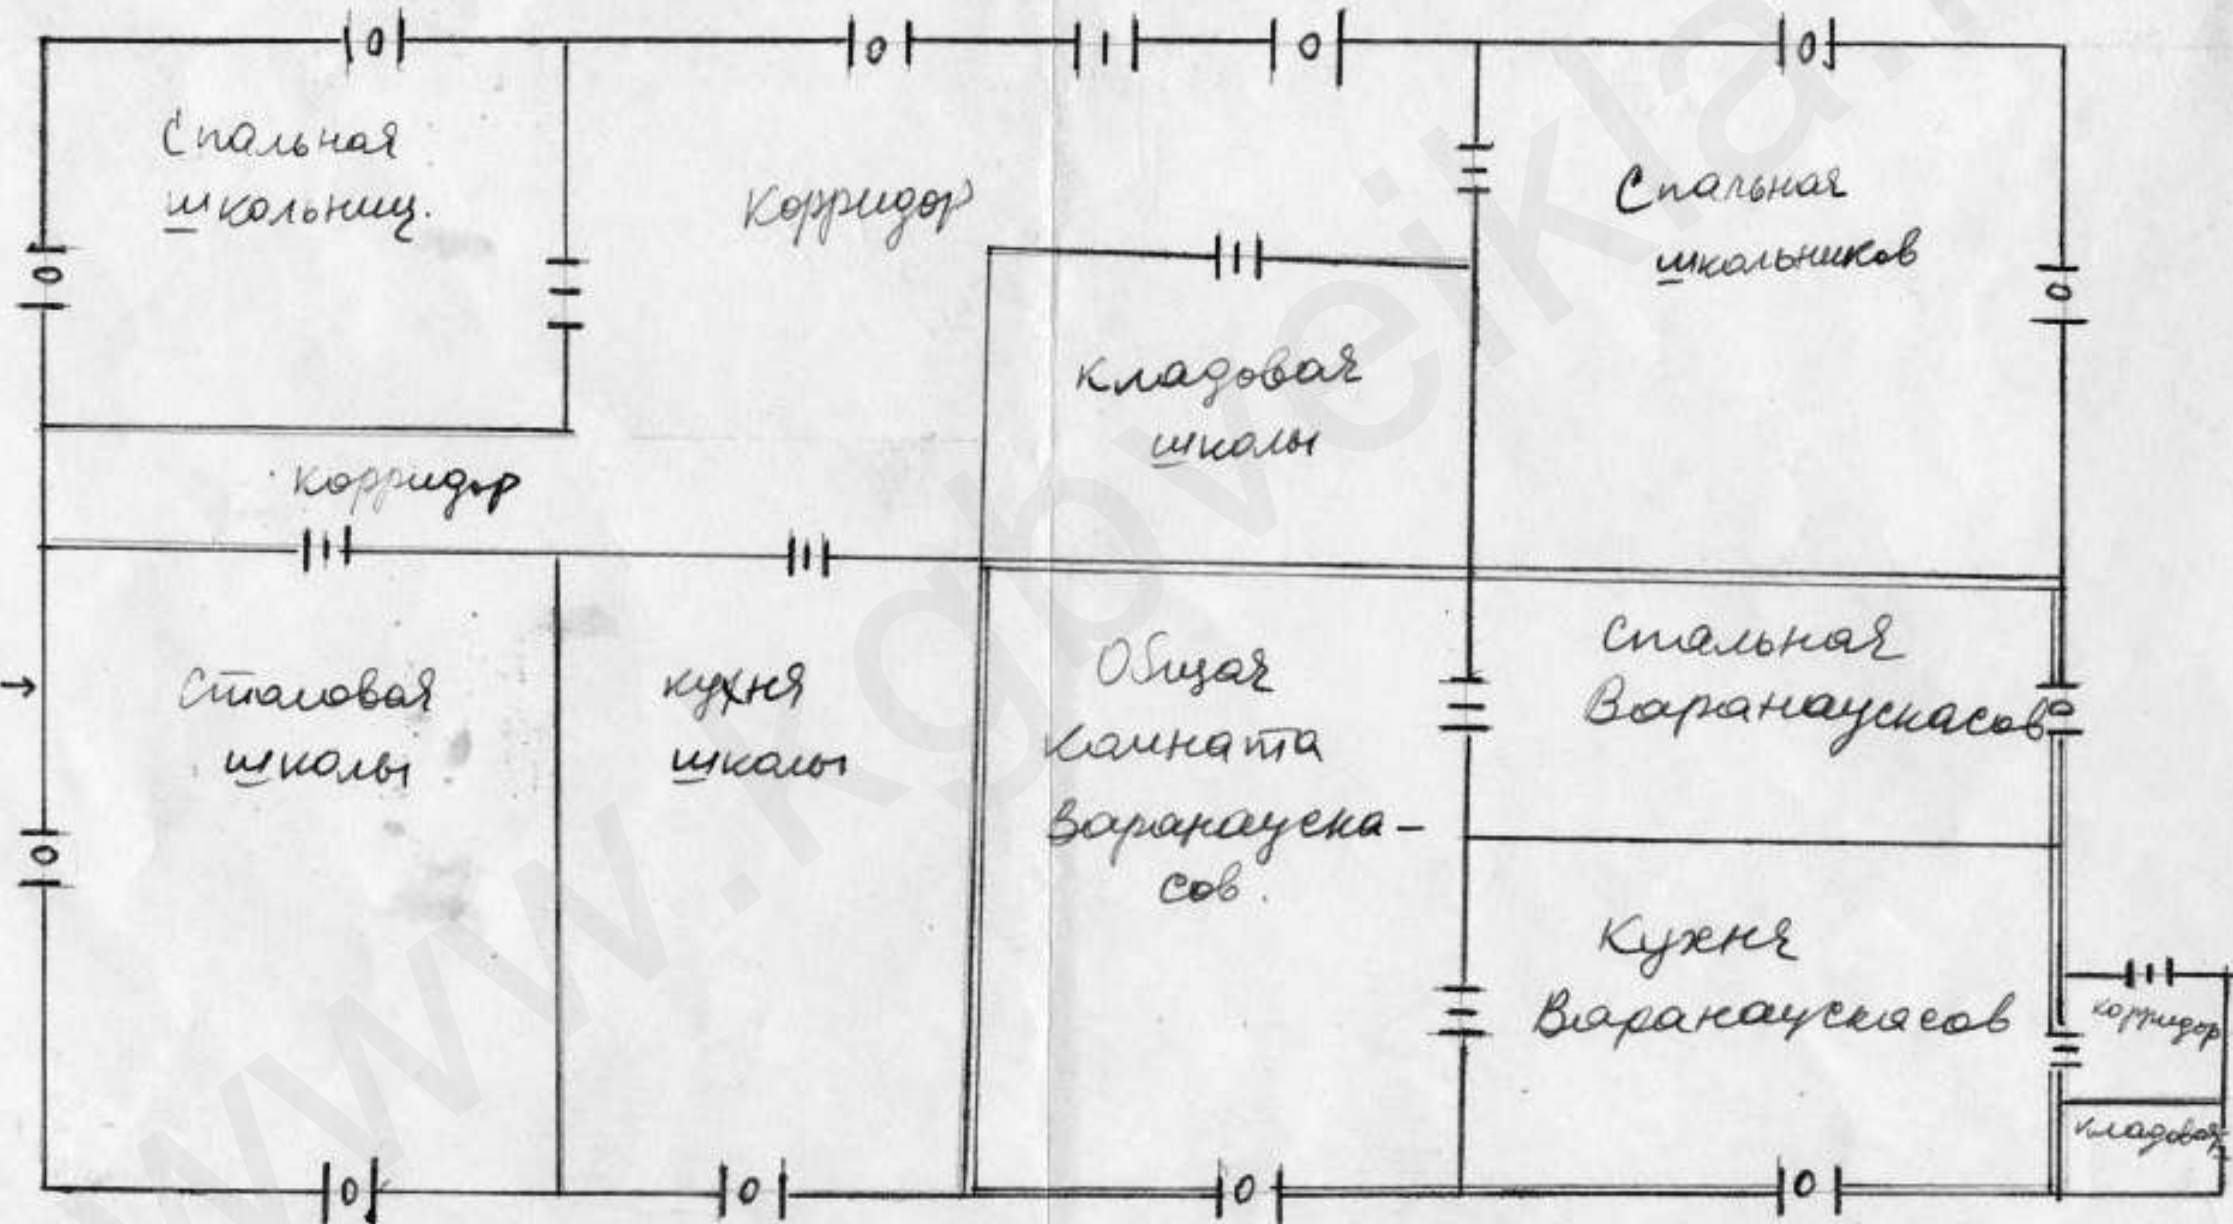 Спальная
школьниц.
Корридор
Спальная
школьников
кладовая
школы
корридор
Столовая
школы
кухня
школы
Общая
комната
Варанауска-
сов.
Спальная
Варанаускасов
Кухня
Варанаускасов
корридор
кладовая
www.kgbveikla.